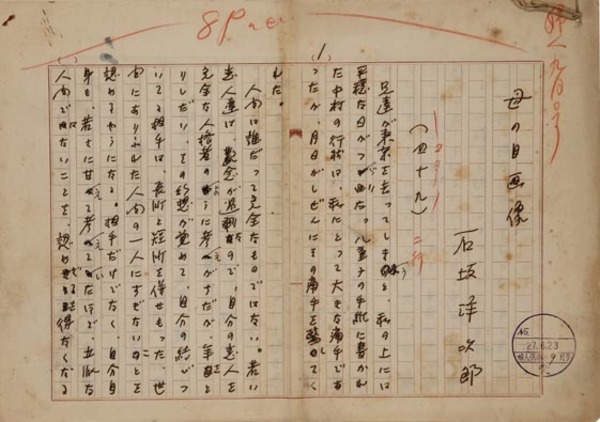 8P
母の自画像
(四十九)
二行
石坂洋次郎
(1)
兄達が東京を去ってしまうと、私の上には
平穏な日がつゞいた。八重子の手紙に書かれ
た中村の行状は、私にとって大きな痛手であ
ったが、月日がしぜんにその痛手を醫してく
れた。
人間は誰だって完全なものではない。若い
恋人達は、観念が過剰なので、自分の恋人を
完全な人格者のように考えがちだが、年月と
りしだい、その幻想が覚めて、自分の結びつ
いてる相手は、長所と短所を併せもった、世
間にありふれた人間の一人にすぎないことを
認めるようになる。相手だけでなく、自分自
身も、若さに甘えて考えていたほど、立派な
人間ではないことを、認めざるを得なくなる
No.
27.6.23
9月号